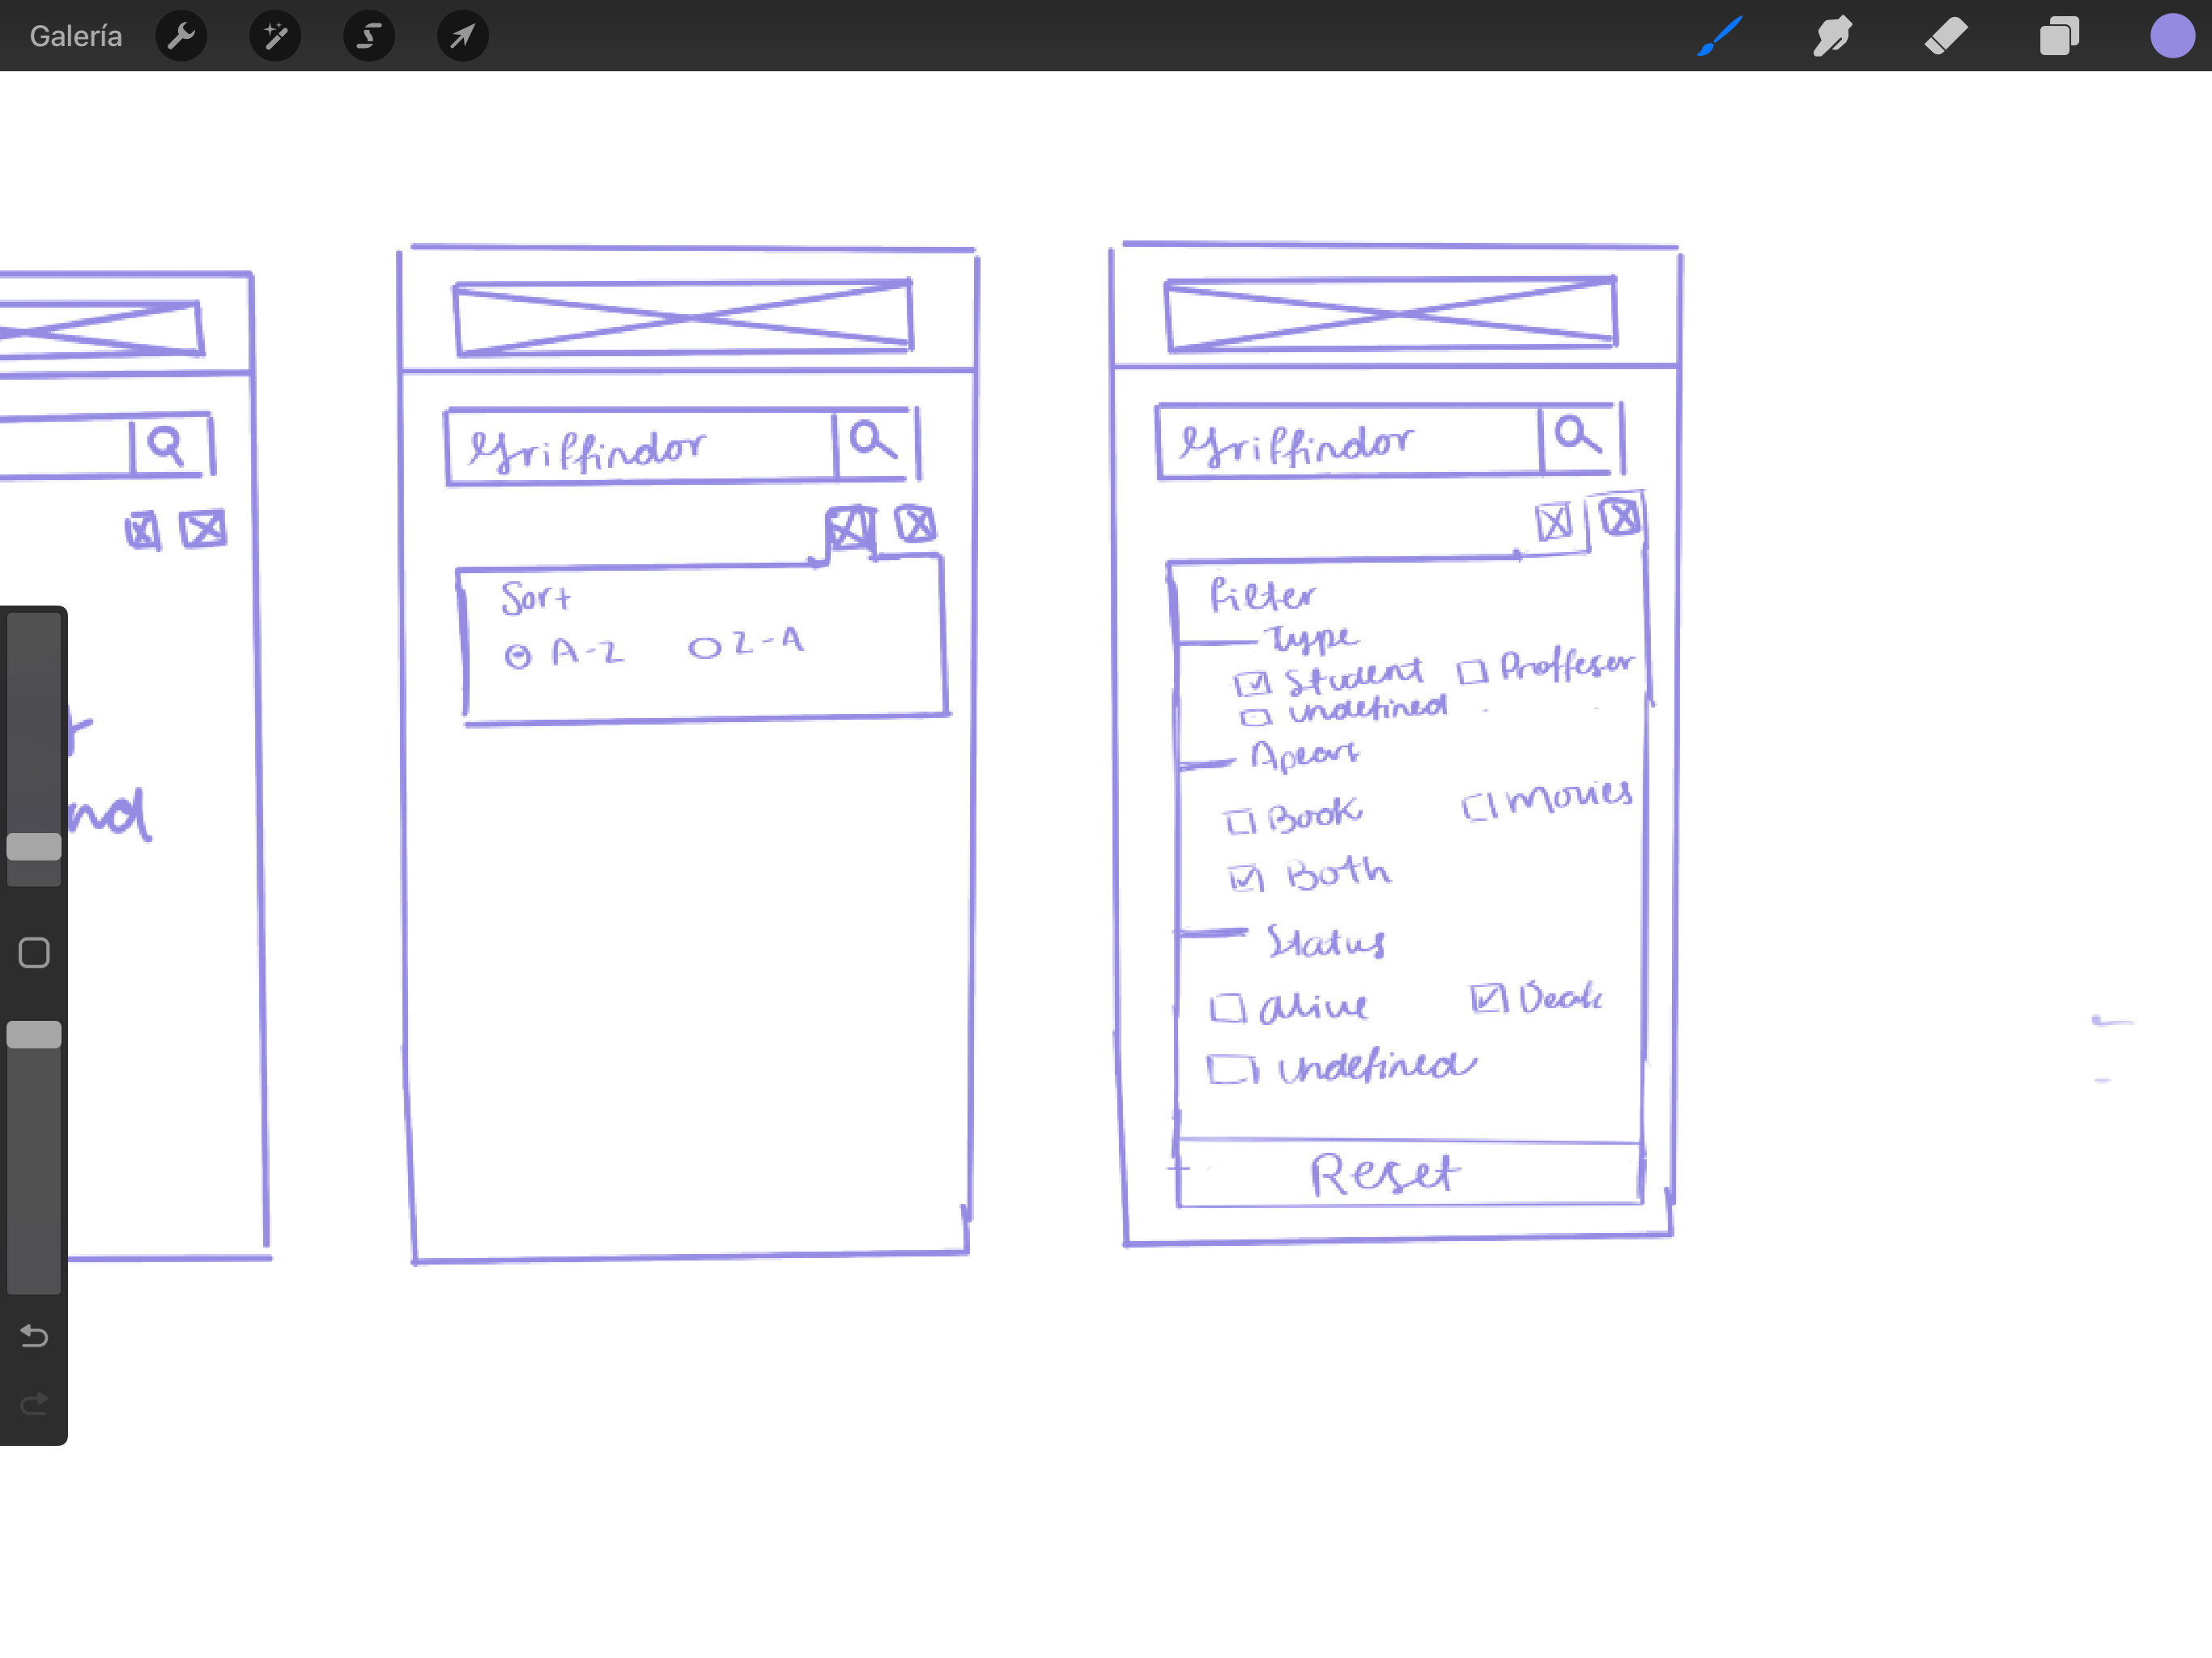 Galería
nd
Griffindor
Sort
A-Z Z-A
Griffindor
Filter
Type
Student Proffeser
undefined
Apeart
Book Movies
Both
Status
alive
undefined
Reset